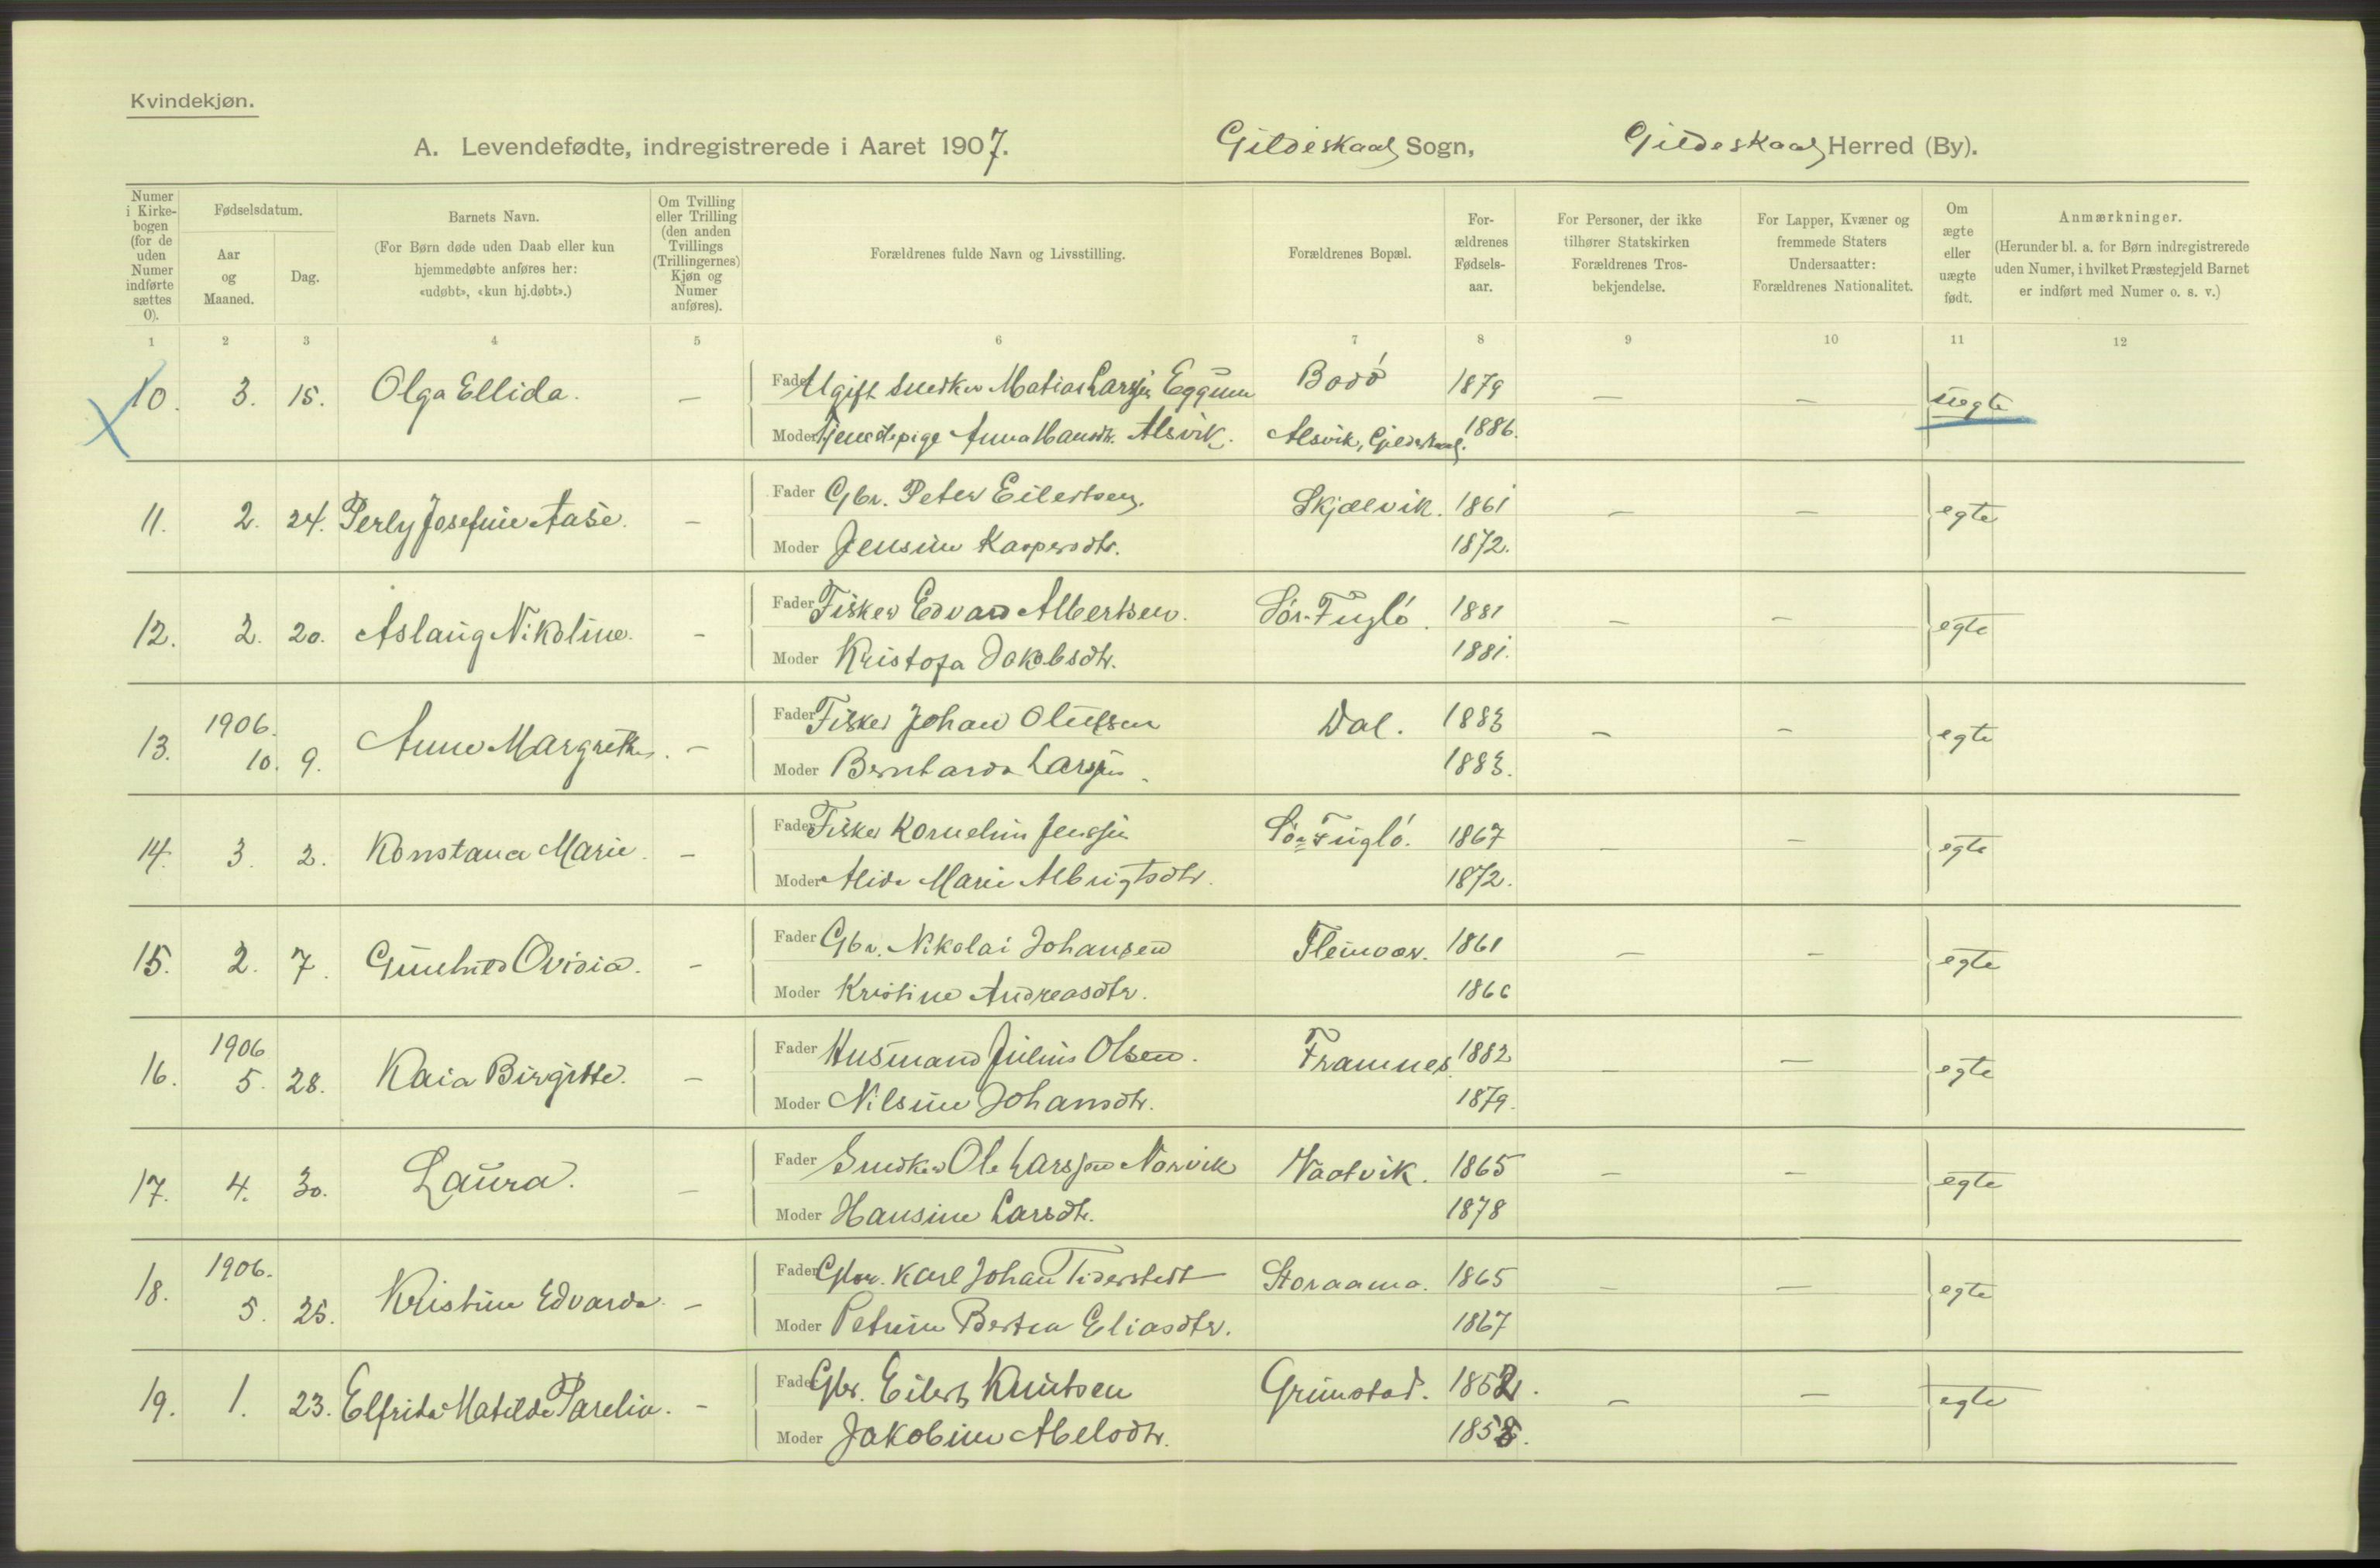 Kvindekjøn.
A. Levendefødte, indregistrerede i Aaret 1907. Gildeskaal Sogn, Gildeskaal Herred (By).
Numer i Kirkebogen (for de uden Numer indførte sættes 0).
Fødselsdatum.
Aar og Maaned.
Dag.
Barnets Navn.
(For Børn døde uden Daab eller kun hjemmedøbte anføres her: «udøbt», «kun hj.døbt».)
Om Tvilling eller Trilling (den anden Tvillings (Trillingernes) Kjøn og Numer anføres).
Forældrenes fulde Navn og Livsstilling.
Forældrenes Bopæl.
Forældrenes Fødselsaar.
For Personer, der ikke tilhører Statskirken Forældrenes Trosbekjendelse.
For Lapper, Kvæner og fremmede Staters Undersaatter: Forældrenes Nationalitet.
Om ægte eller uægte født.
Anmærkninger.
(Herunder bl. a. for Børn indregistrerede uden Numer, i hvilket Præstegjeld Barnet er indført med Numer o. s. v.)
1 2 3 4 5 6 7 8 9 10 11 12
10. 3. 15. Olga Ellida. — Fader Ugift Snedker Matias Larsen Eggum Bodó 1879 — — uegte
Moder Tjenestepige Anna Hansdtr. Alsvik. Alsvik, Gildeskaal. 1886.
11. 2. 24. Perly Josefine Aase. — Fader Gbr. Peter Eilertsen. Skjælvik. 1861 — — egte
Moder Jensine Kaspersdtr. 1872.
12. 2. 20. Aslaug Nikoline. — Fader Fisker Edvard Albertsen. Sór-Fugló. 1881 — — egte
Moder Kristofa Jakobsdtr. 1881.
13. 1906. 10. 9. Anne Margrethe. — Fader Fisker Johan Olufsen Dal. 1883 — — egte
Moder Bernharda Larsen. 1883.
14. 3. 2. Konstana Marie. — Fader Fisker Kornelius Jensen Sór-Fugló. 1867 — — egte
Moder Alida Marie Albrigtsdtr. 1872.
15. 2. 7. Gunhild Ovidia. — Fader Gbr. Nikolai Johansen Fleinvær. 1861 — — egte
Moder Kristine Andreasdtr. 1866
16. 1906 5. 28. Kaia Birgitte. — Fader Husmand Julius Olsen. Framnes. 1882 — — egte
Moder Nilsine Johansdtr. 1879.
17. 4. 30. Laura. — Fader Snedker Ole Larsen Norvik Naatvik. 1865 — — egte
Moder Hansine Larsdtr. 1878
18. 1906. 5. 25. Kristine Edvarda. — Fader Gbr. Karl Johan Tiderstedt Storaama. 1865 — — egte
Moder Petrine Bertea Eliasdtr. 1867
19. 1. 23. Elfrida Matilde Parelia. — Fader Gbr. Eilert Knutsen Grimstad. 1852. — — egte
Moder Jakobine Abelsdtr. 1858.